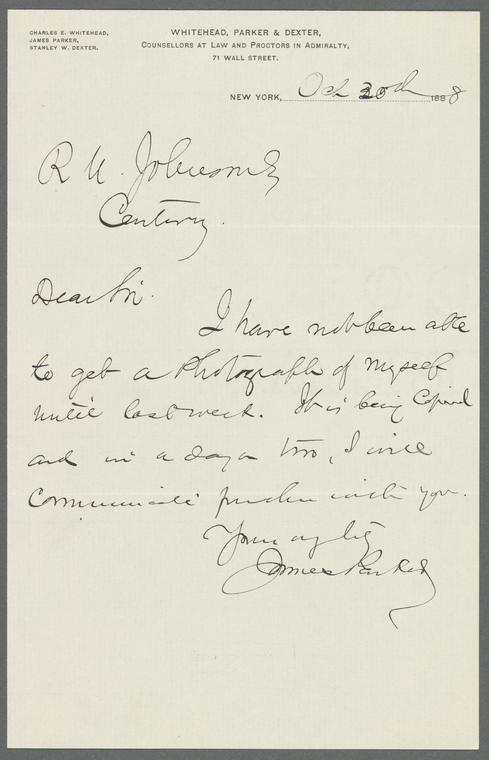 CHARLES E. WHITEHEAD,
JAMES PARKER,
STANLEY W. DEXTER.
WHITEHEAD, PARKER & DEXTER,
COUNSELLORS AT LAW AND PROCTORS IN ADMIRALTY,
71 WALL STREET.
NEW YORK, Oct 30th 1888
R U. Johnson
Century.
Dear Sir.
I have not been able
to get a Photograph of myself
until last week. It is being Copied
and in a day or two, I will
Communicate further with you.
Yours
James Parker